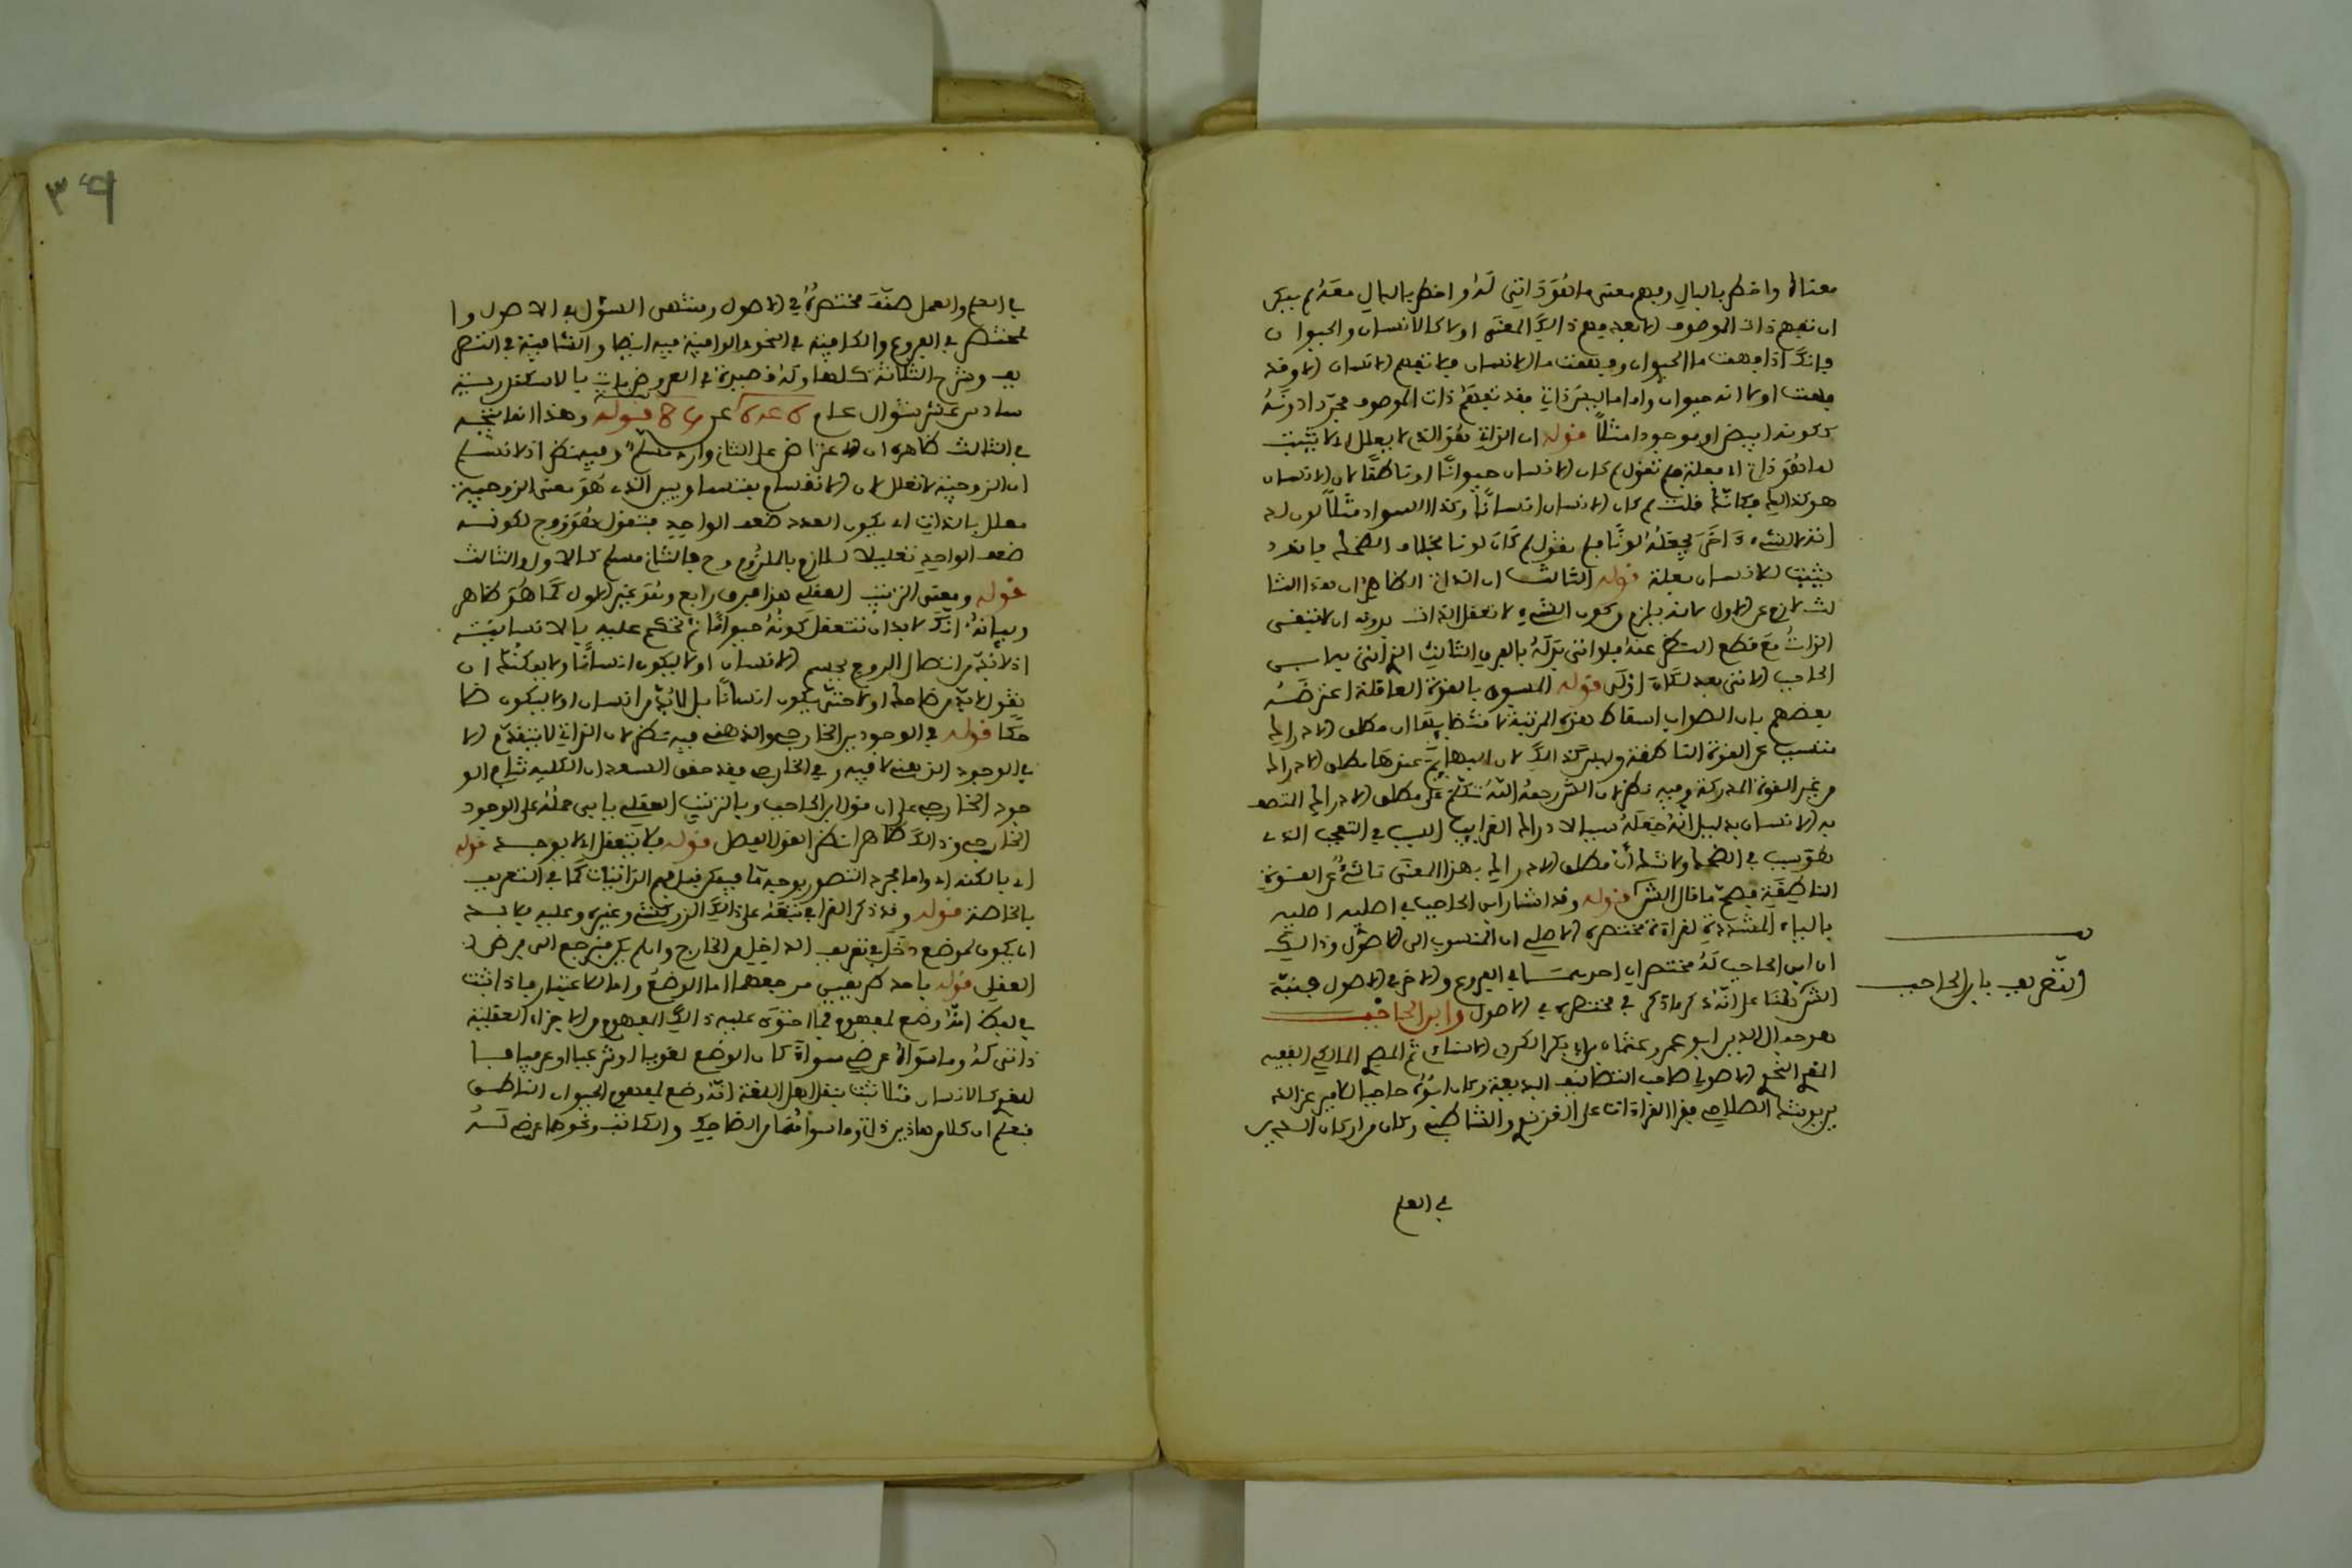 معناه واخطر بالبال وبهم معنى ما هو ذاتي له واخطر بالبال معه لم يمكن
ان تفهم ذات الموصوف الا بعد فهم ذالك المعنى اولا كالانسان والحيوان
فانك اذا فهمت ما الحيوان وفهمت ما الانسان فلا تفهم الانسان الا وقد
فهمت اولا انه حيوان واما ما ليس ذاتي فقد تفهم ذات الموصوف مجردا دونه
ككونه ابيض او موجودا مثلا قوله ان الذاتي هو الذي لا يعلل اي لا يثبت
لما هو ذاتي له بعلة فلم تقول لم كان الانسان حيوانا او ناطقا لان الانسان
هو كذالك فكانك قلت لم كان الانسان انسانا وكذا السواد مثلا لون لذاته
لا لشيء اخر يجعله لونا فلم تقول لم كان لونا بخلاف الضحك فانه
يثبت للانسان بعلة قوله الثالث ان الذاتي الظاهر ان هذا الثا
لث لازم عن الاول لانه يلزم من كون الشيء لا تعقل الذات بدونه ان لا تبقى
الذات مع قطع النظر عنه فلو اتى بدله بالعرف الثالث الذي اتى به ابن
الحاجب الاتي بعد لكان اولى قوله المسمى بالقوة العاقلة اعترضه
بعضهم بان الصواب اسقاط هذه المرتبة لاقتضائها ان مطلق الادراك
متسبب عن القوة الناطقة وليس كذالك لان البهائم عندها مطلق الادراك
من غير القوة المدركة وفيه نظر لان الش رحمه الله تكلم على مطلق الادراك المتصف
به الانسان بدليل انه جعله سببا لادراك الغرايب السبب في التعجب الذي
هو سبب في الضحك ولا شك ان مطلق الادراك بهذا المعنى ناشئ عن القوة
الناطقة فصح ما قال الش قوله وقد اشار ابن الحاجب في اصليه اصليه
بالياء المشددة لغراة مختصره الاصلي اي المنسوب الى الاصول وذالك
ان ابن الحاجب له مختصران احدهما في الفروع والاخر في الاصول فنبه
الش هنا على انه ذكر ما ذكر في مختصره في الاصول وابن الحاجب
هو جمال الدين ابو عمرو عثمان بن ابي بكر الكردي الاسنائي ثم المصري المالكي الفقيه
المقرئ النحوي الاصولي صاحب التصانيف البديعة وكان ابوه حاجبا للامير عز الدين
بن يوشك الصلاحي فقرا القراءات على الغزنوي والشاطبي وكان من اركان الدين
في العلم
التعريف بابن الحاجب
٣٩
في العلم والعمل صنف مختصره في الاصول ومنتهى السؤل في الاصول وا
لمختصر في الفروع والكافية في النحو والوافية فيه ايضا والشافية في التصر
يف وشرح الثلاثة كلها وله قصيدة في العروض مات بالاسكندرية
سادس عشر شوال عام عن قوله وهذا انما يتجه
في الثالث ظاهره ان الاعتراض على الثاني وارد مسلم وفيه نظر اذ لا نسلم
ان الزوجية لا تعلل لان الانقسام بمتساويين الذي هو معنى الزوجية
معلل بالذاتي اي بكون العدد ضعف الواحد فتقول هو زوج لكونه
ضعف الواحد تعليلا للازم بالملزوم وح فالثاني مسلم كالاول والثالث
قوله ومعنى الترتيب العقلي هذا فرق رابع وهو غير الاول كما هو ظاهر
وبيانه انك لا بد ان تتعقل كونه حيوانا ثم تحكم عليه بالانسانية
اذ لا بد من اتصال الروح بجسم الانسان اولا ليكون انسانا ولا يمكنك ان
تقول لا بد من ضاحك اولا حتى يكون انسانا بل لا بد من انسان اولا ليكون ضا
حكا قوله في الوجودين الخارجي والذهني فيه نظر لان الذاتي لا يتقدم الا
في الوجود الذهني لا فيه وفي الخارجي فقد حقق السعد ان الكلية تنافي الو
جود الخارجي على ان قول ابن الحاجب وبالترتيب العقلي يابى حمله على الوجود
الخارجي وذالك ظاهر انظر القول الفصل قوله فلا يتعقل الا بوجه قوله
اي بالكنه اي واما مجرد التصور بوجه ما فيمكن قبل فهم الذاتيات كما في التعريف
بالخاصة قوله وقد ذكر القرافي تبعه على ذالك الزركشي وغيره وعليه فلا بد
ان يكون للوضع دخل في تعريف الداخل من الخارج وان لم يكن فيرجع الى فرض
العقل قوله باحد طريقين مرجعهما اما الوضع واما الاعتبار فاذا ثبت
في لفظ انه وضع لمفهوم فما احتوى عليه ذالك المفهوم من الاجزاء العقلية
ذاتي له وما سواه عرضي سواء كان الوضع لغويا او شرعيا او عرفيا فا
للغوي كالانسان مثلا ثبت بنقل اهل اللغة انه وضع لمفهوم الحيوان الناطق
فنعلم ان كلا من هاذين ذاتي وما سواهما من الضاحك والكاتب ونحوهما عرضي له